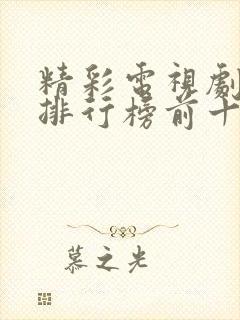 精彩電視劇
排行榜前十
慕之光